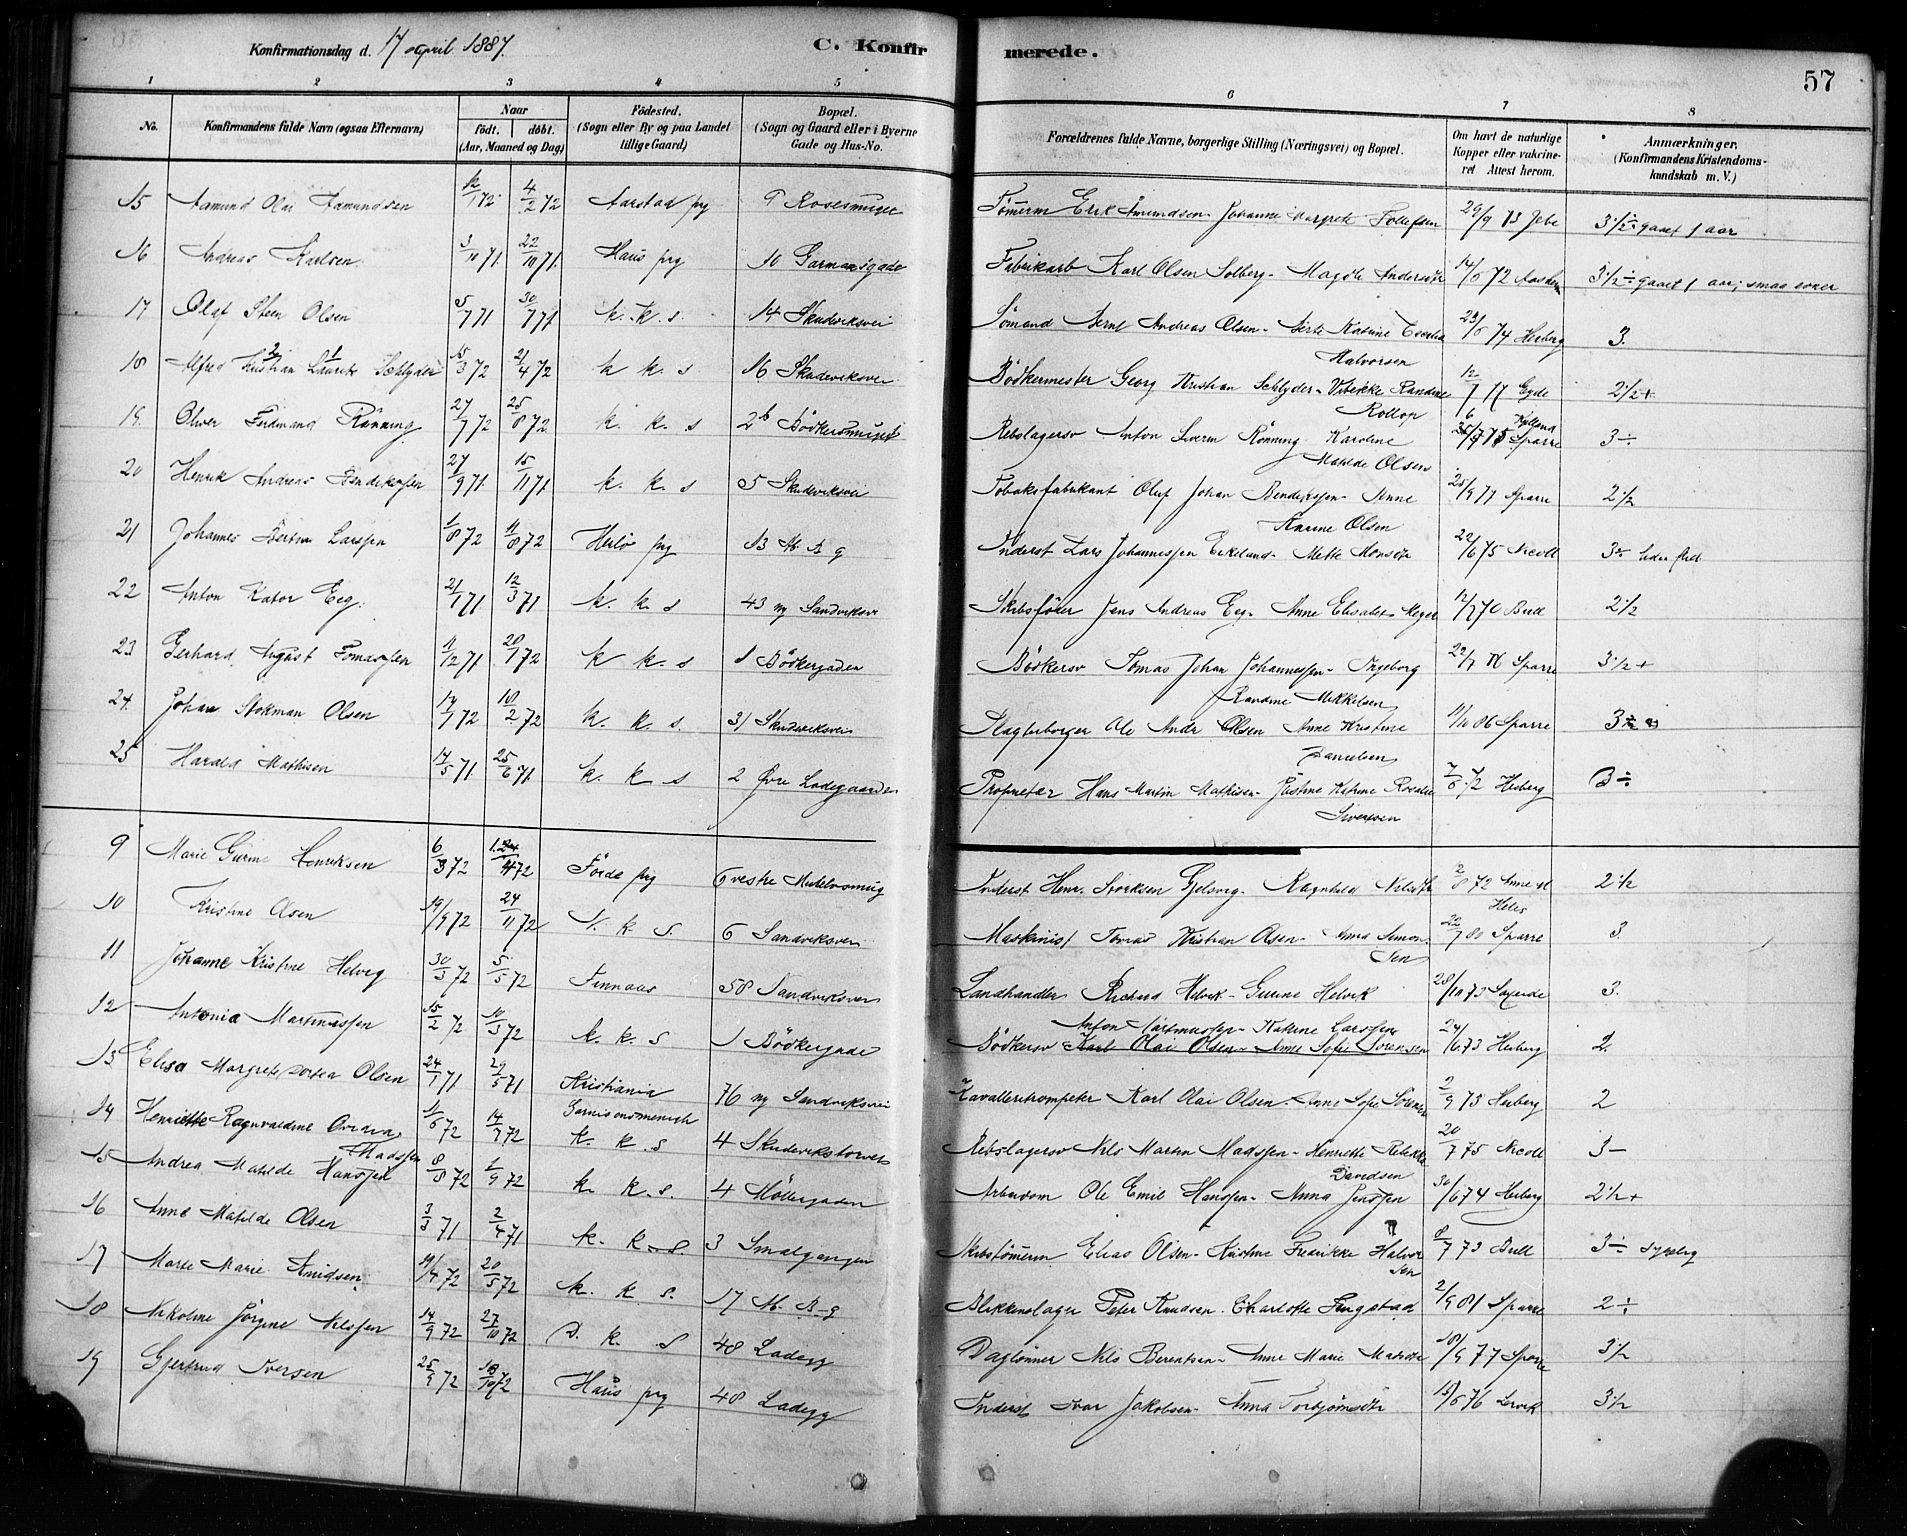 Konfirmationsdag d. 17 april 1887. C. Konfirmerede. 57
1 2 3 4 5 6 7 8
No. Konfirmandens fulde Navn (ogsaa Efternavn) Naar født. døbt. (Aar, Maaned og Dag) Fødested. (Sogn eller By og paa Landet tillige Gaard) Bopæl. (Sogn og Gaard eller i Byerne Gade og Hus-No. Forældrenes fulde Navne, borgerlige Stilling (Næringsvei) og Bopæl. Om havt de naturlige Kopper eller vakcineret Attest herom. Anmærkninger. (Konfirmandens Kristendomskundskab m. V.)
15 Aamund Olai Aamundsen 12/1 72 4/2 72 Aarstad prg 9 Rosesmuget Tömerm Erik Amundsen - Johanne Margrete Tollefsen 29/9 73 3 1/2 ÷ gaaet 1 aar
16 Andreas Karlsen 3/10 71. 22/10 71. Haus prg 10 Garmansgade Fabrikarb Karl Olsen Solberg - Magdle Andersdtr 72 3 1/2 ÷ gaaet 1 aar; smaa evner
17 Olaf Steen Olsen 5/7 71 30/7 71 k. k. s. 14 Skudeviksvei Sömand Bernt Andreas Olsen - Berte Katrine Halvorsen 74 Heiberg 3.
18 Alfred Kristian Laurits Schlyder 15/3 72 21/4 72 k k. s 16 Skudeviksvei Bödkermester Georg Kristian Schlyder - Vibekke Randine Rollop 12/7 77 Eyde 2 1/2 +
19. Oliver Ferdinand Rönning 27/7 72 25/8 72 k. k. s 2b Bödkersmuget Rebslagersv Anton Severin Rönning Karoline Matilde Olsen 75 Sparre 3 ÷
20 Henrik Andreas Bendiksen 27/9 71. 15/11 71 k. k. s 5 Skudeviksvei Tobaksfabrikant Oluf Johan Bendiksen - Anne Karine Olsen 25/9 77 Sparre 2 1/2
21 Johannes Bertin Larssen 1/8 72 11/8 72 Herlö prg 13 N. A g Inderst Lars Johannessen Eikeland - Mette Monsdtr 22/6 75 Nicoll 3
22 Anton Kator Eeg. 21/1 71 12/3 71 k. k. s 43 ny Sandviksv Skibsförer Jens Andreas Eeg - Anne Elisabet Meyer 12/7 70 Bull 2 1/2
23 Gerhard August Tomassen 11/12 71 20/1 72 k k. s 1 Bödkergaden Bödkersv Tomas Johan Johannessen - Ingeborg Randine Mikkelsen 22/7 Sparre 3 1/2 +
24. Johan Stokman Olsen 14/1 72 18/2 72 k. k. s. 31 Skudeviksvei Slagterborger Ole Andr Olsen Anne Kristine Danielsen 86 Sparre 3
25 Harald Mathisen 14/5 71. 25/6 71. k. k s 2 Øvre Ladegaarden Proprietær Hans Martin Mathisen - Justine Katrine Rosalie Sivertsen 7/6 72 Heiberg 3 ÷
9 Marie Gurine Henriksen 6/3 72 1.24/4 72 Förde prg 6 vestre Murlvsmug Inderst Henr. Storksen Gjelsvig - Ragnhild Nilsdtr 2/8 72 2 1/2
10 Kristine Olsen 19/9 72 24/11 72 N. k S. 6 Sandviksvei Maskinist Tomas Kristian Olsen - Anna Simonsen 22/7 80 Sparre 3.
11 Johanne Kristine Helvig 30/3 72 5/5 72 Finnaas 58 Sandviksvei Landhandler Richard Helvik - Gurine Helvik 28/10 73 3.
12 Antonia Martinussen 15/2 72 10/3 72 k. k. s 1 Bödkergade Bödkersv Anton Martinussen - Katrine Larssen Karl Olai Olsen - Anne Sofie Sörensen 24/6 73 Heiberg 2
13 Elisa Margrete Dortea Olsen 24/1 71 29/5 71 Kristiania Garnisonsmenigh 76 ny Sandviksvei Kavalleritrompeter Karl Olai Olsen. Anne Sofie Sörensen 2/9 75 Heiberg 2
14 Henriette Ragnvaldine Ovidia Madssen 11/6 72 14/7 72 k. k s 4 Skudevikstorvet Rebslagersv Nils Martin Madssen - Henriette Rebekka Davidsen 20/7 75 Nicoll 3 -
15 Andrea Matilde Hanssen 8/8 72 1/9 72 k. k. s. 4 Möllergaden Arbeidsm Ole Emil Hanssen - Anna Jenssen 30/6 74 Heiberg 2 1/2 +
16 Anne Matilde Olsen 3/3 71 2/4 71 k. k. s 3 Smalgangen Skibstömerm Elias Olsen - Kristine Fredrikke Halvorsen 8/7 73 Bull 3 ÷ sygelig
17 Marte Marie Knudsen. 19/4 72 20/5 72 k. k. s. 17 N. B-g Blikkenslager Peter Knudsen. Charlotte Fingstad 2/9 81 Sparre 2 ÷
18 Nikoline Jörgine Nilssen 14/9 72 27/10 72 D. k. s 48 Ladegg Daglönner Nils Berentsen - Anne Marie Matsdtr 18/9 77 Sparre 3 1/2
19 Gjertrud Iversen 25/9 72 13/10 72 Haus prg 48 Ladegg Inderst Ivar Jakobsen - Anna Torbjörnsdtr 15/6 76 Lervik 3 1/2